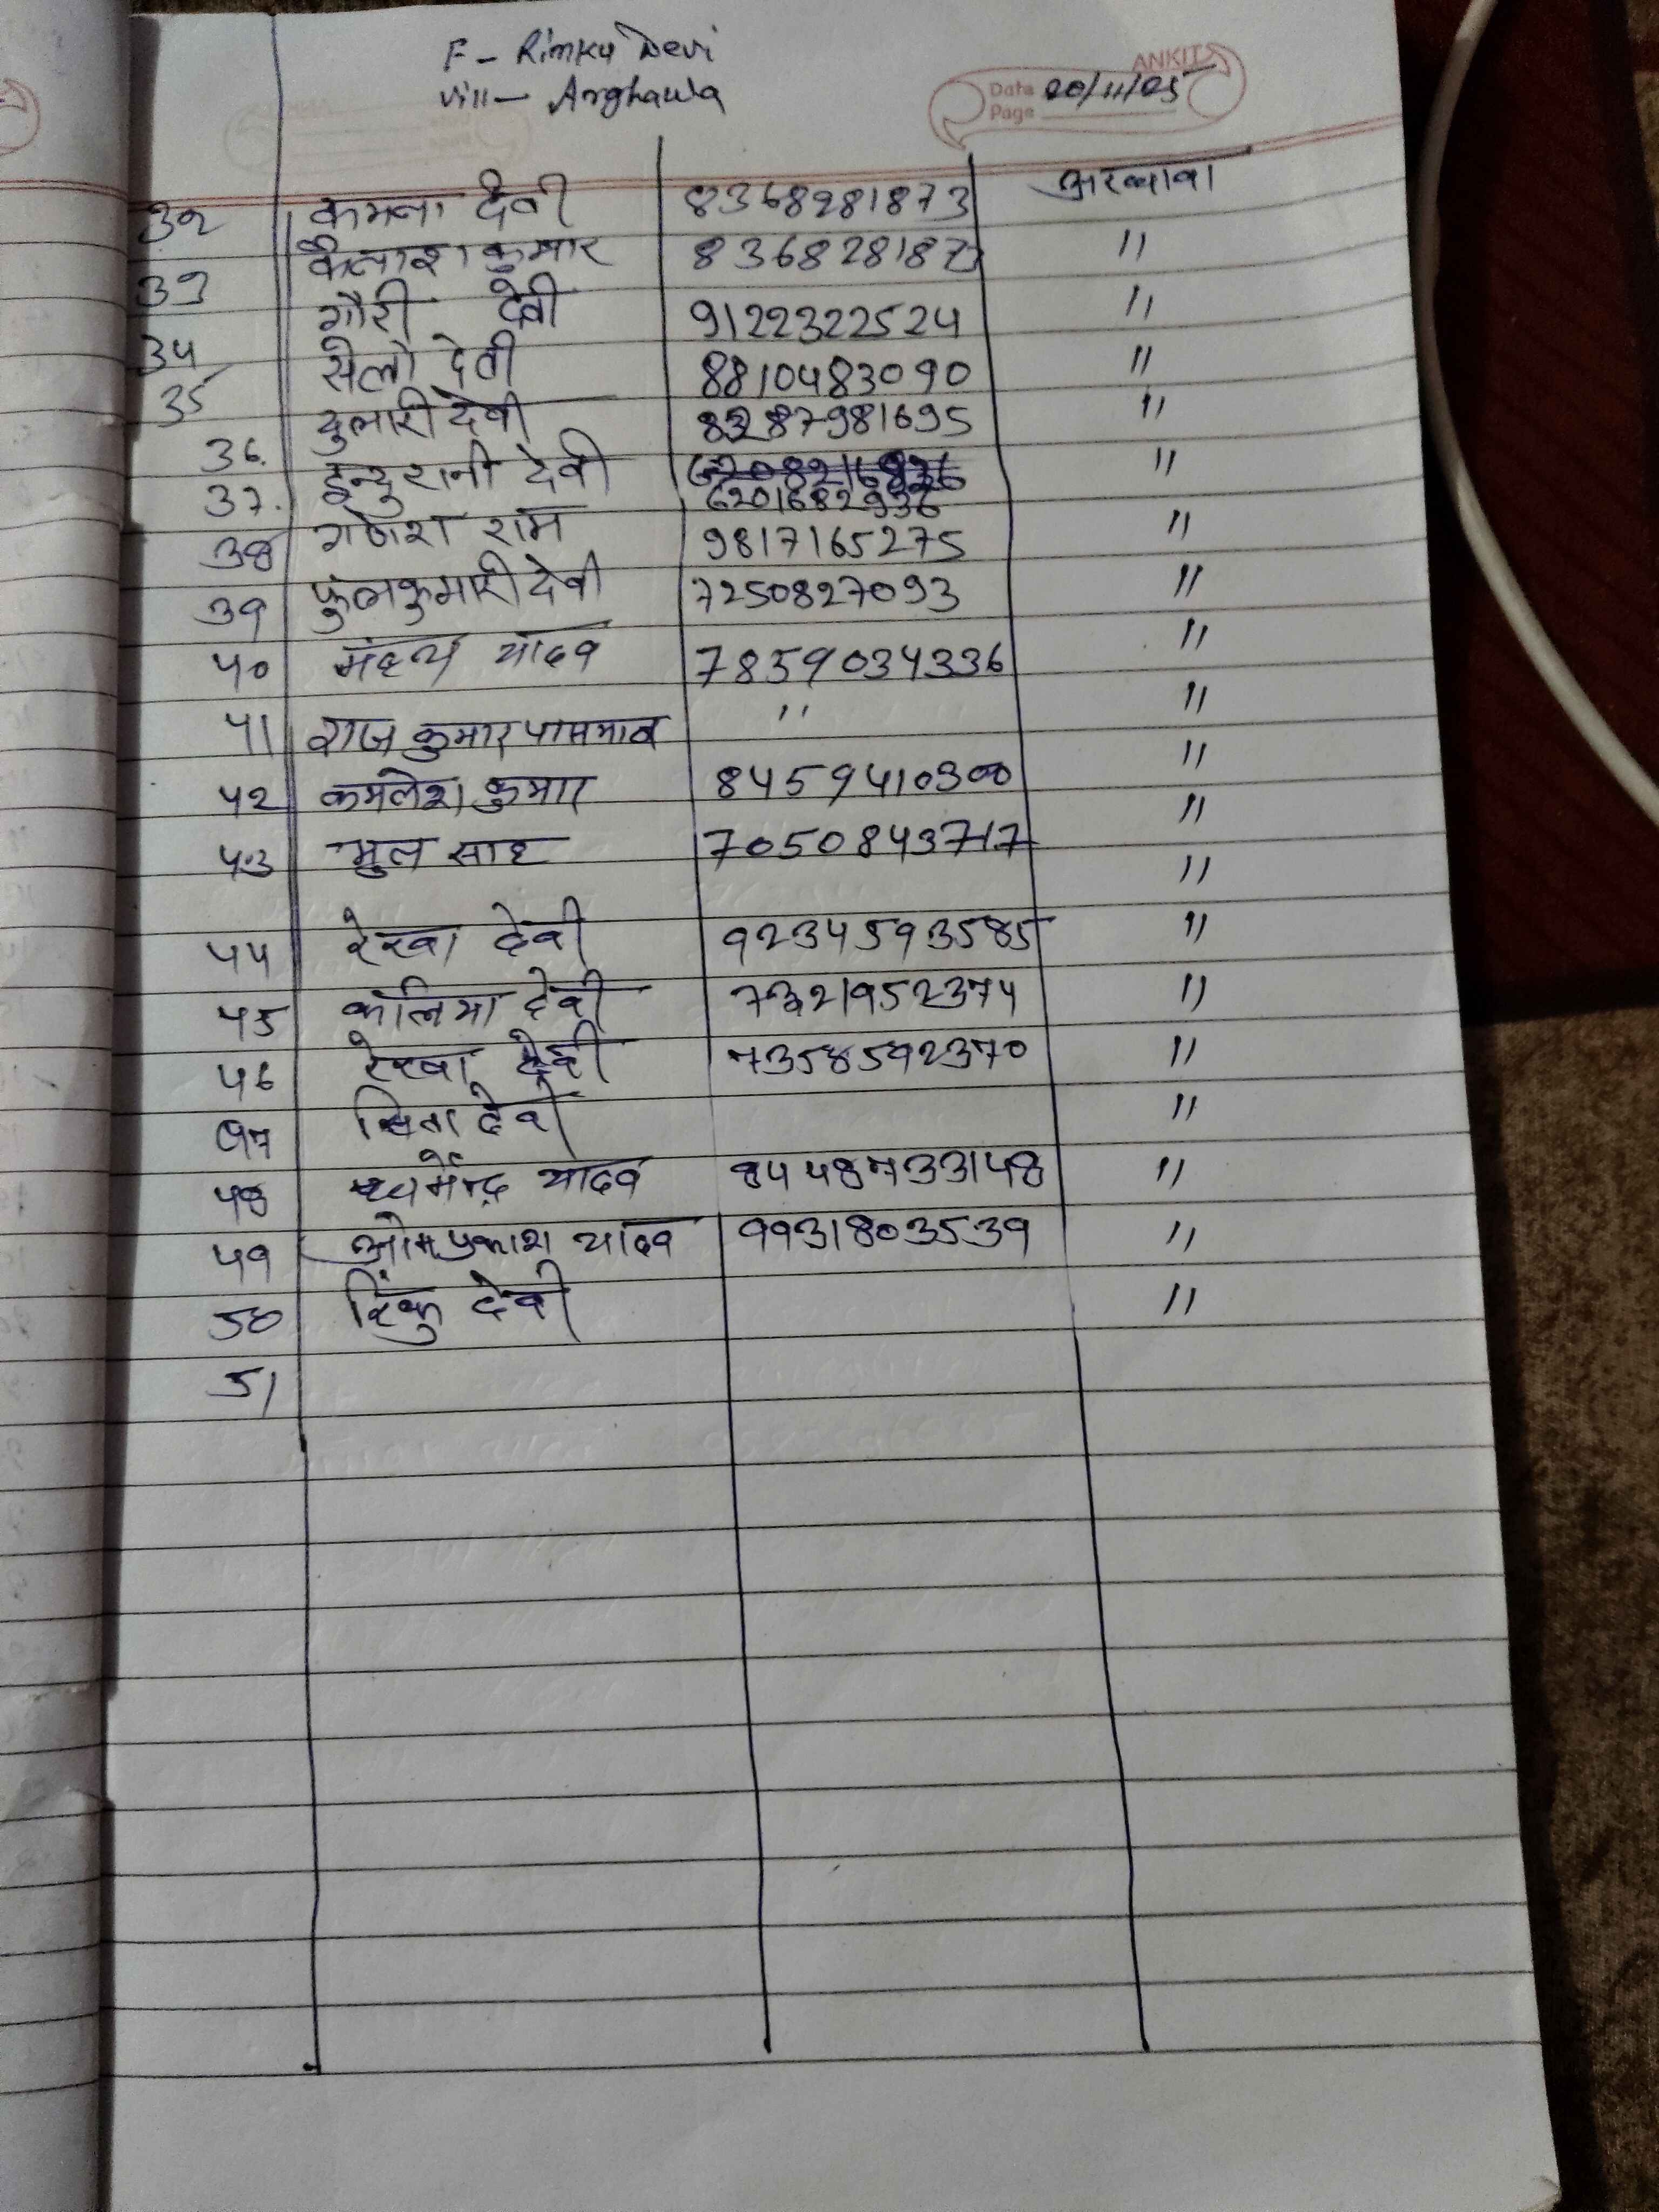 F - Rinku Devi
Vill - Arghawa
ANKIT
Date 20/11/25
Page
32 कमला देवी 8368281873
33 कैलाश कुमार 8368281873 "
34 गौरी देवी 9122322524 "
35 सेलो देवी 8810483090 "
36. दुलारी देवी 8287981695 "
37. इन्दु रानी देवी 6201682936 "
38 गणेश राम 9817165275 "
39 फुलकुमारी देवी 7250827093 "
40 यादव 7859034336 "
41 राज कुमार पासमान " "
42 कमलेश कुमार 8459410300 "
43 भुल साह 7050843717 "
"
44 रेखा देवी 9234593585 "
45 कलिया देवी 7321952374 "
46 रेखा देवी 7358592370 "
47 सिता देवी "
48 ध्यर्मेन्द्र यादव 8448733148 "
49 ओमप्रकाश यादव 9931803539 "
50 रिंकु देवी "
51